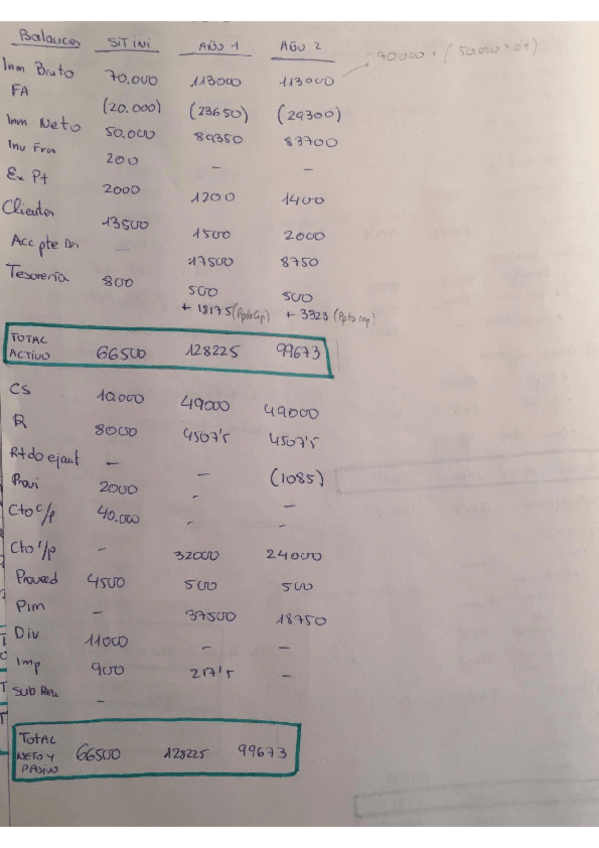 Balances SIT INI AÑO 1 AÑO 2
Inm Bruto 70.000 113000 113000 70000 + (50.000 × 0'9)
FA (20.000) (23650) (29300)
Inm Neto 50.000 89350 83700
Inv Fra 200 - -
Ex Pt 2000 1200 1400
Clientes 13500 1500 2000
Acc pte Des - 17500 8750
Tesorería 800 500 500
+ 18175 (Ppto Cap) + 3323 (Ppto cap)
TOTAL
ACTIVO 66500 128225 99673
CS 10.000 49000 49000
R 8000 4507'5 4507'5
Rtdo ejant - - (1085)
Provi 2000 - -
Cto c/p 40.000 - -
Cto l/p - 32000 24000
Proveed 4500 500 500
PIm - 37500 18750
Div 11000 - -
Imp 900 217'5 -
Sub Rei -
TOTAL
NETO Y 66500 128225 99673
PASIVO